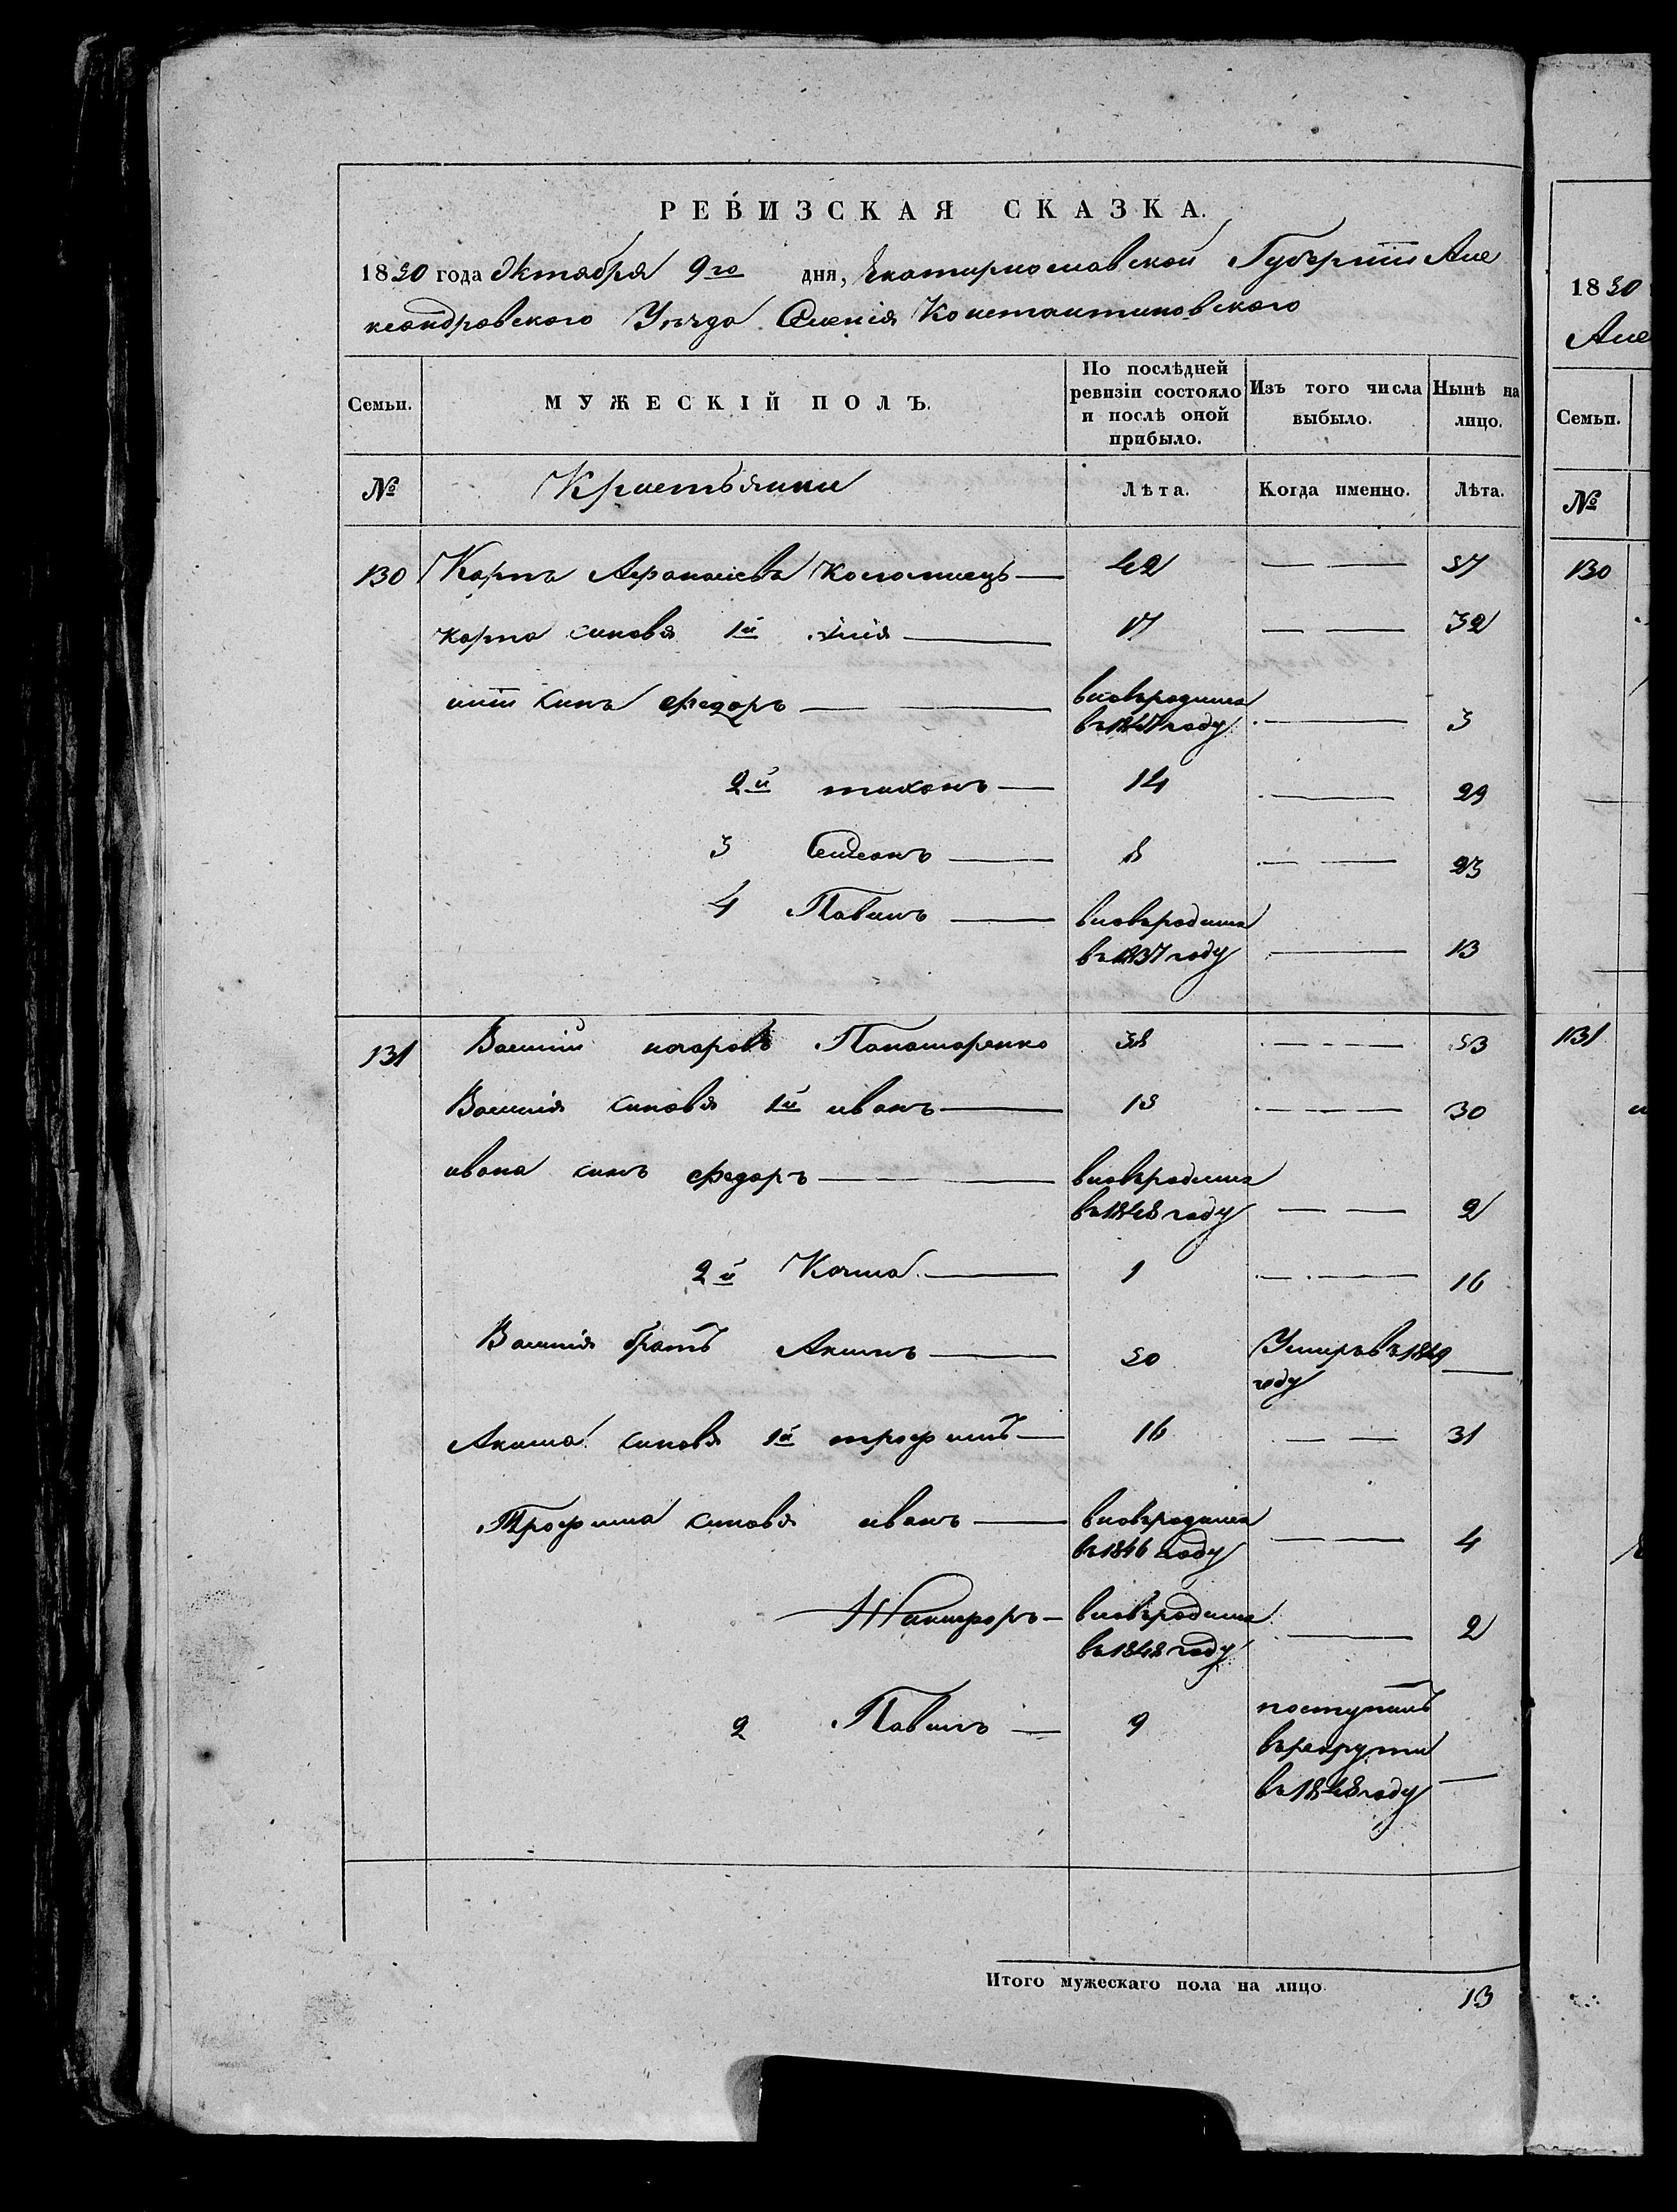 РЕВИЗСКАЯ СКАЗКА.
1850 года Октября 9го дня, Екатирнославской Губернии Але
ксандровского Уезда Селенія Константиновского
Семьи. МУЖЕСКІЙ ПОЛЪ. По послѣдней ревизіи состояло и послѣ оной прибыло. Изъ того числа выбыло. Нынѣ на лицо.
№ Кристьянии Лѣта. Когда именно. Лѣта.
130 Карпъ Афанасіевъ Коломиецъ 42 — — 57
Карпа синовя 1й илія 17 — — 32
иліи синъ федоръ вновьродился въ 1847 году — 3
2й тихонъ 14 — 29
3 Семенъ 8 — — 23
4 Павилъ вновьродился въ 1837 году — 13
131 Василий Пономаренко 38 — — — 53
Василія синовя 1й иванъ 15 — — — 30
ивана синъ федоръ вновьродился въ 1848 году — — 2
2й Козма 1 — — 16
Василія братъ Акимъ 50 Умиръ въ 1849 году —
Акима синовя 1й трофимъ 16 — — 31
Трофима синовя иванъ вновьродился въ 1846 году — — 4
Никифоръ вновьродился въ 1848 году — 2
2 Павилъ 9 поступилъ врекруты въ 1848 году —
Итого мужескаго пола на лицо 13
1850
Але
Семьи.
№
130
131